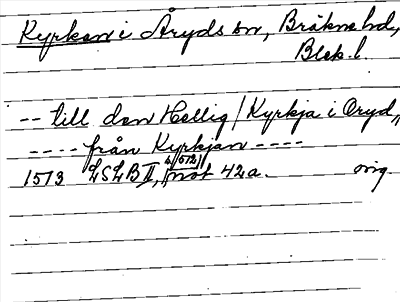 Kyrkan i Åryds sn, Bräkne hd,
Blek. l.
-- till den Hellig/Kyrkja i Oryd,,
---- från Kyrkjan ----
1573 LSLB II, (1572) not 42a. orig.